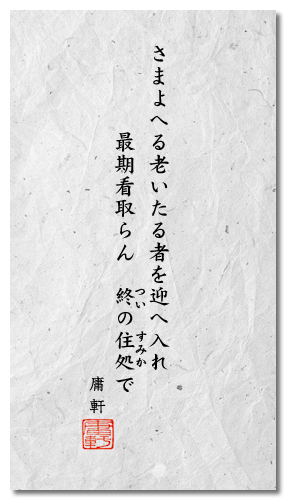 さまよへる老いたる者を迎へ入れ
最期看取らん　終の住処で
つい
すみか
庸軒
庸軒